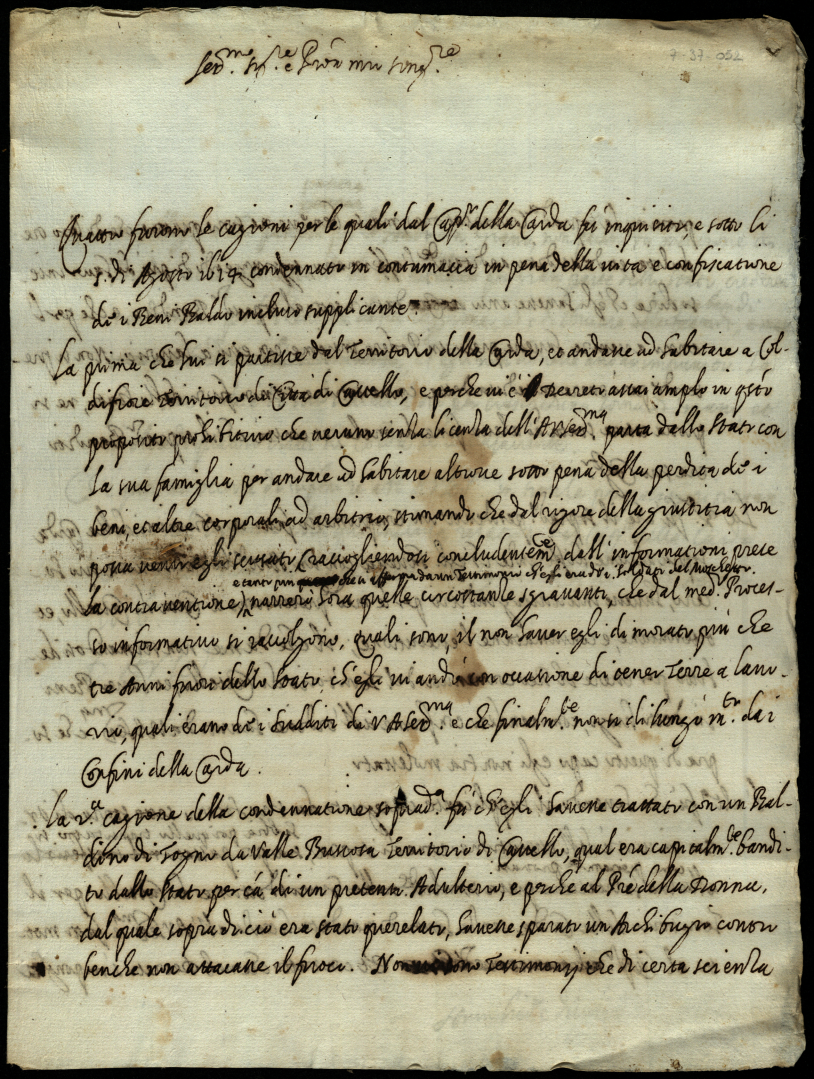 Ser.mo Sig.re e Pron mio sing.re
7-37-052
Quattro furono le cagioni per le quali dal Cap.o della Carda fù inquisito, e sotto li
di Agosto 1614 condennato in contumacia in pena della vita e confiscatione
de i Beni Baldo infrascritto supplicante.
La prima che lui si partisse dal Territorio della Carda, et andasse ad habitare a Col-
difiore Territorio di Città di Castello, e perche vi è Decreto assai amplo in q.sto
proposito prohibitivo che nessuno senza licenza dell'A.V.Ser.ma parta dallo stato con
la sua famiglia per andare ad habitare altrove sotto pena della perdita de i
beni, et altre corporali ad arbitrio, stimando che dal rigore della giustitia non
possa venir egli scusato (raccogliendosi concludentem.e dall'informationi prese
e tanto più che si afferma da un Testimonio ch'egli era de i soldati del
la contraventione) narrerò hora quelle circostanze sgravanti, che dal med.o Proces-
so informativo si raccolgono, quali sono, il non haver egli dimorato più che
tre Anni fuori dello stato, ch'egli vi andò con occasione di tener Terre a lavo-
rio, quali erano de i sudditi di V.A.Ser.ma e che finalm.te non si dilungò m.to dai
Confini della Carda.
La 2.a cagione della condennatione soprad.a fù ch'egli havesse trattato con un Bal-
dino di Togno da Valle Buscosa Territorio di Castello, qual era capitalm.te bandi-
to dallo stato per cá di un preteso Adulterio, e perche al Pre della Donna,
dal quale sopra di ciò era stato querelato, havesse sparato un Archibugio contro
benche non attacasse il fuoco. Non vi sono Testimonij che di certa scienza